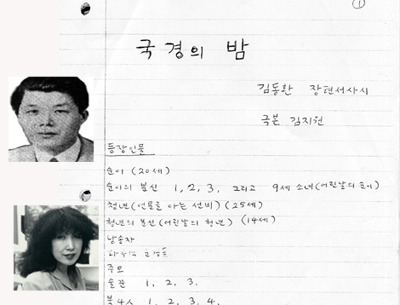 ①
국경의 밤
김동환 장편서사시
극본 김지원
등장인물
순이 (20세)
순이의 분신 1, 2, 3, 그리고 9세 소녀(어린날의 순이)
청년(언문을 아는 선비) (25세)
청년의 분신(어린날의 청년) (14세)
남송자
주모
술꾼 1, 2, 3.
봇군 1, 2, 3, 4.